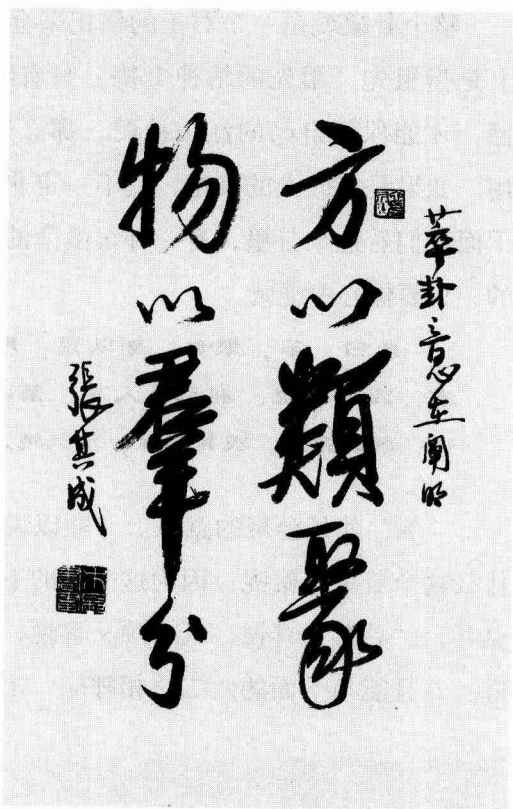 萃卦意在阐明
方以類聚
物以羣分
張其成